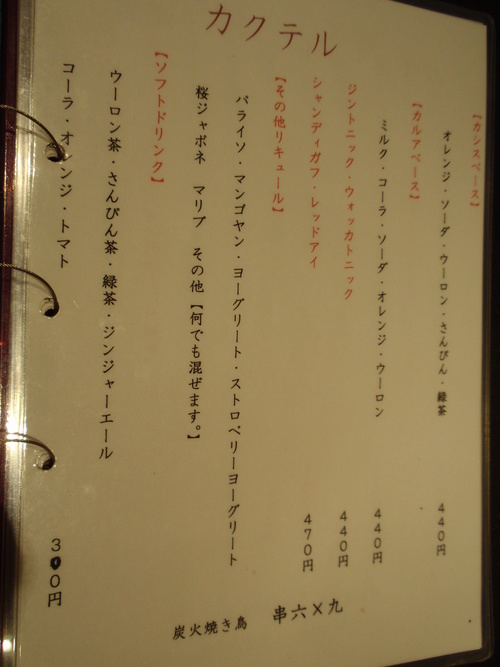 カクテル
【カシスベース】
オレンジ・ソーダ・ウーロン・さんぴん・緑茶 440円
【カルアベース】
ミルク・コーラ・ソーダ・オレンジ・ウーロン 440円
ジントニック・ウォッカトニック 440円
シャンディガフ・レッドアイ 470円
【その他リキュール】
パライソ・マンゴヤン・ヨーグリート・ストロベリーヨーグリート
桜ジャポネ マリブ その他【何でも混ぜます。】
【ソフトドリンク】
ウーロン茶・さんぴん茶・緑茶・ジンジャーエール
コーラ・オレンジ・トマト 300円
炭火焼き鳥 串六×九